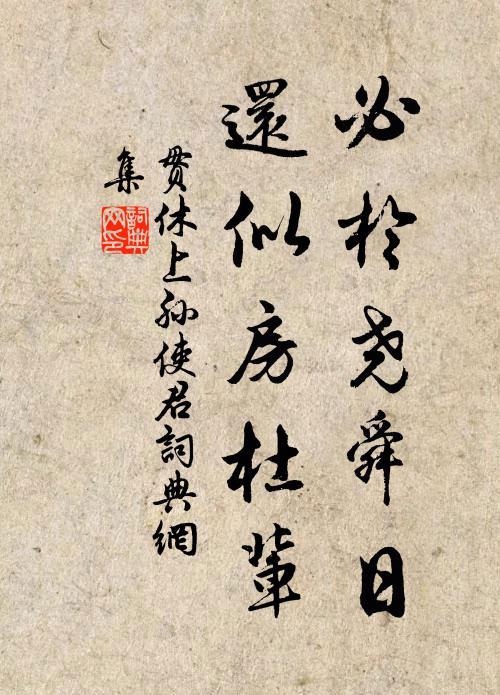 必於尧舜日
還似房杜輩
貫休上孫使君詞典網
集
詞典
网印